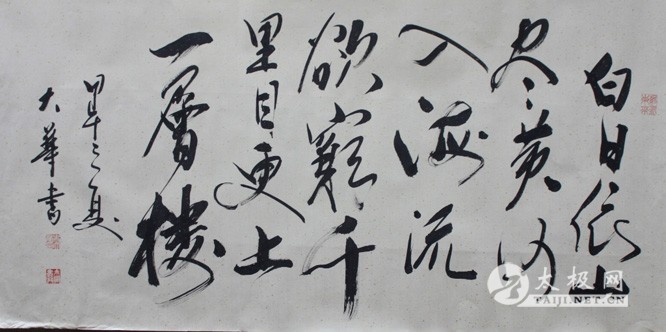 白日依山
尽黄河
入海流
欲窮千
里目更上
一層楼
甲午之夏
大華書
太极网
TAIJI.NET.CN